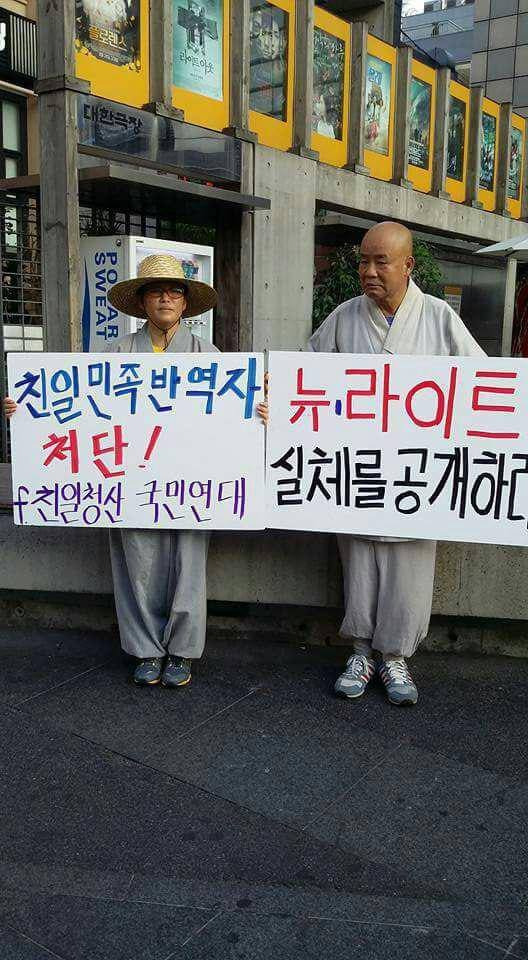 플로렌스
라이트 아웃
대한극장
POCARI
SWEAT
친일민족반역자
처단!
f.친일청산 국민연대
뉴·라이트
실체를공개하라